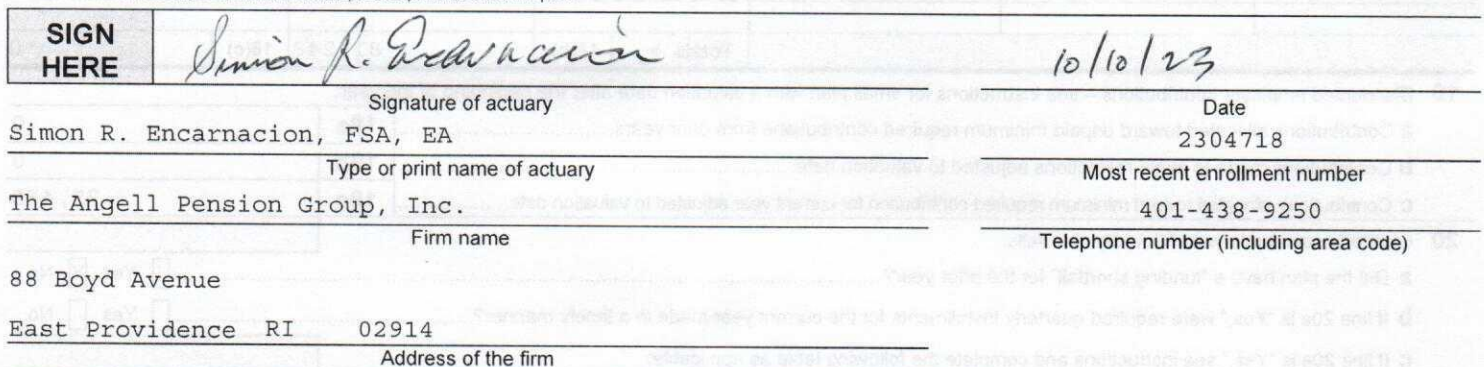 SIGN HERE Simon R. Encarnacion 10/10/23
Signature of actuary Date
Simon R. Encarnacion, FSA, EA 2304718
Type or print name of actuary Most recent enrollment number
The Angell Pension Group, Inc. 401-438-9250
Firm name Telephone number (including area code)
88 Boyd Avenue
East Providence RI 02914
Address of the firm